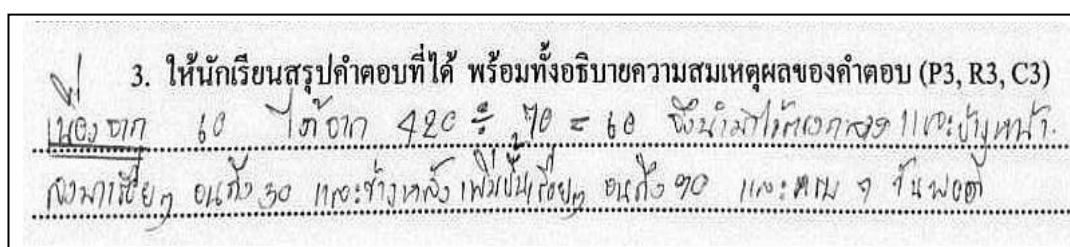 3. ให้นักเรียนสรุปคำตอบที่ได้ พร้อมทั้งอธิบายความสมเหตุผลของคำตอบ (P3, R3, C3)
เนื่องจาก 60 ได้จาก 420 ÷ 70 = 60 จึงนำมาไว้ตรงกลาง และข้างหน้า
ลงมาเรื่อยๆ จนถึง 30 และข้างหลัง เพิ่มขึ้นเรื่อยๆ จนถึง 90 และครบ 7 วันพอดี